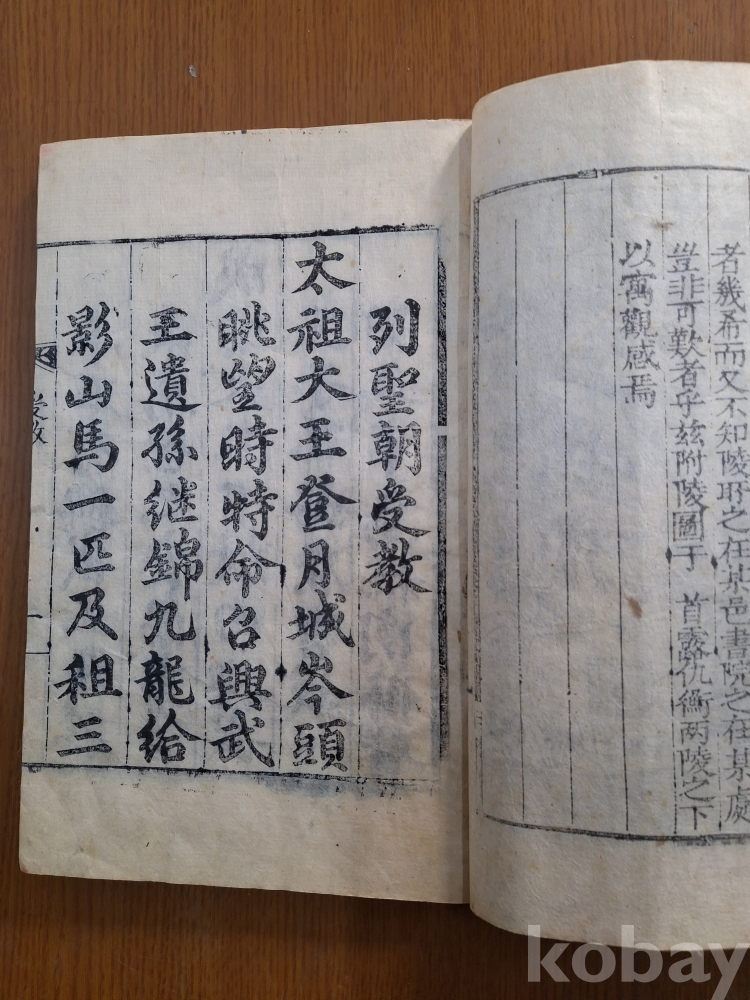 者幾希而又不知陵耶之在某邑書院之在某處
豈非可歎者乎兹附陵圖于 首露仇衡兩陵之下
以寓觀感焉
列聖朝受教
太祖大王登月城岑頭
眺望時特命召興武
王遺孫继錦九龍給
影山馬一匹及租三
受教
一
kobay